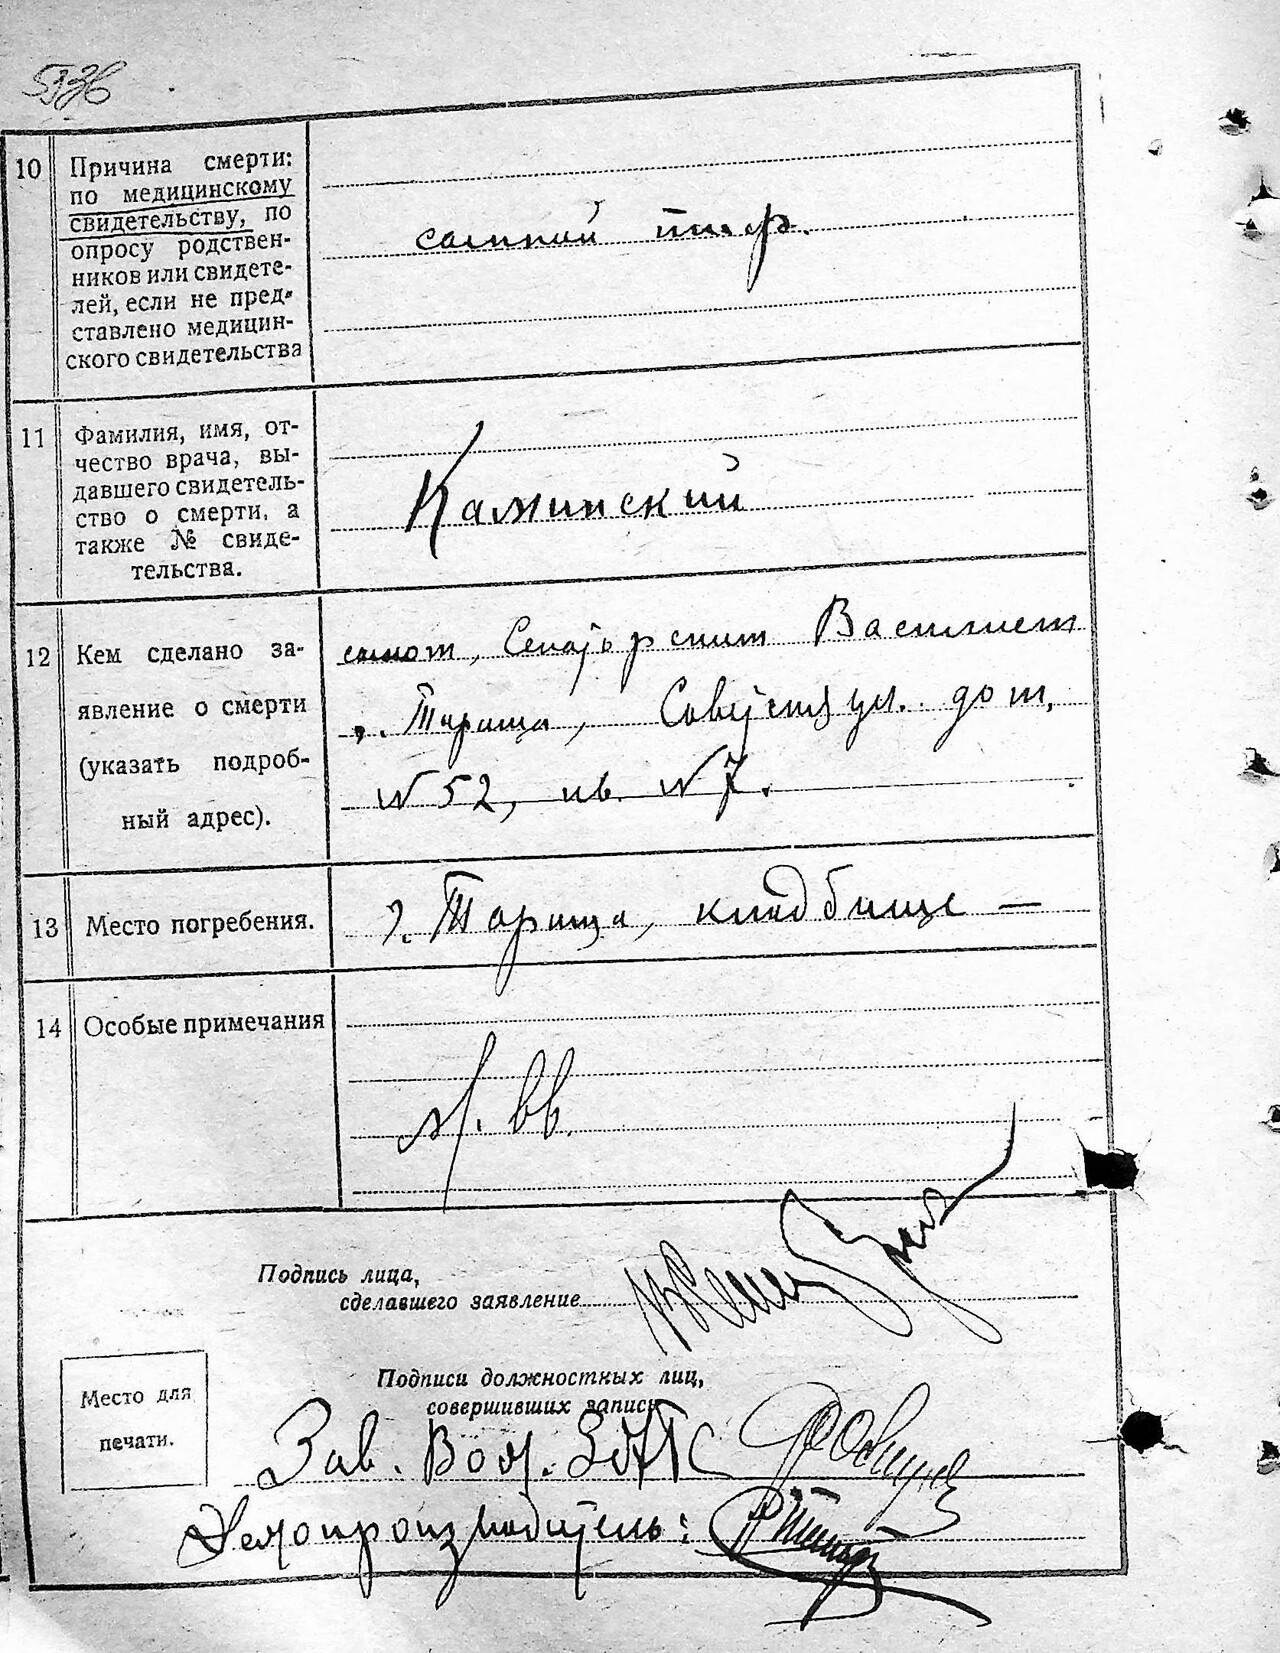 10 Причина смерти:
по медицинскому
свидетельству, по
опросу родствен-
ников или свидете-
лей, если не пред-
ставлено медицин-
ского свидетельства
11 Фамилия, имя, от-
чество врача, вы-
давшего свидетель-
ство о смерти, а
также № свиде-
тельства.
Каминский
12 Кем сделано за-
явление о смерти
(указать подроб-
ный адрес).
Василием
г. Тараща, ул. дом,
N 52, кв. N 7.
13 Место погребения.
г. Тараща, кладбище —
14 Особые примечания
Подпись лица,
сделавшего заявление
Подписи должностных лиц,
совершивших запись
Место для
печати.
Зав. ЗАГС
Делопроизводитель: